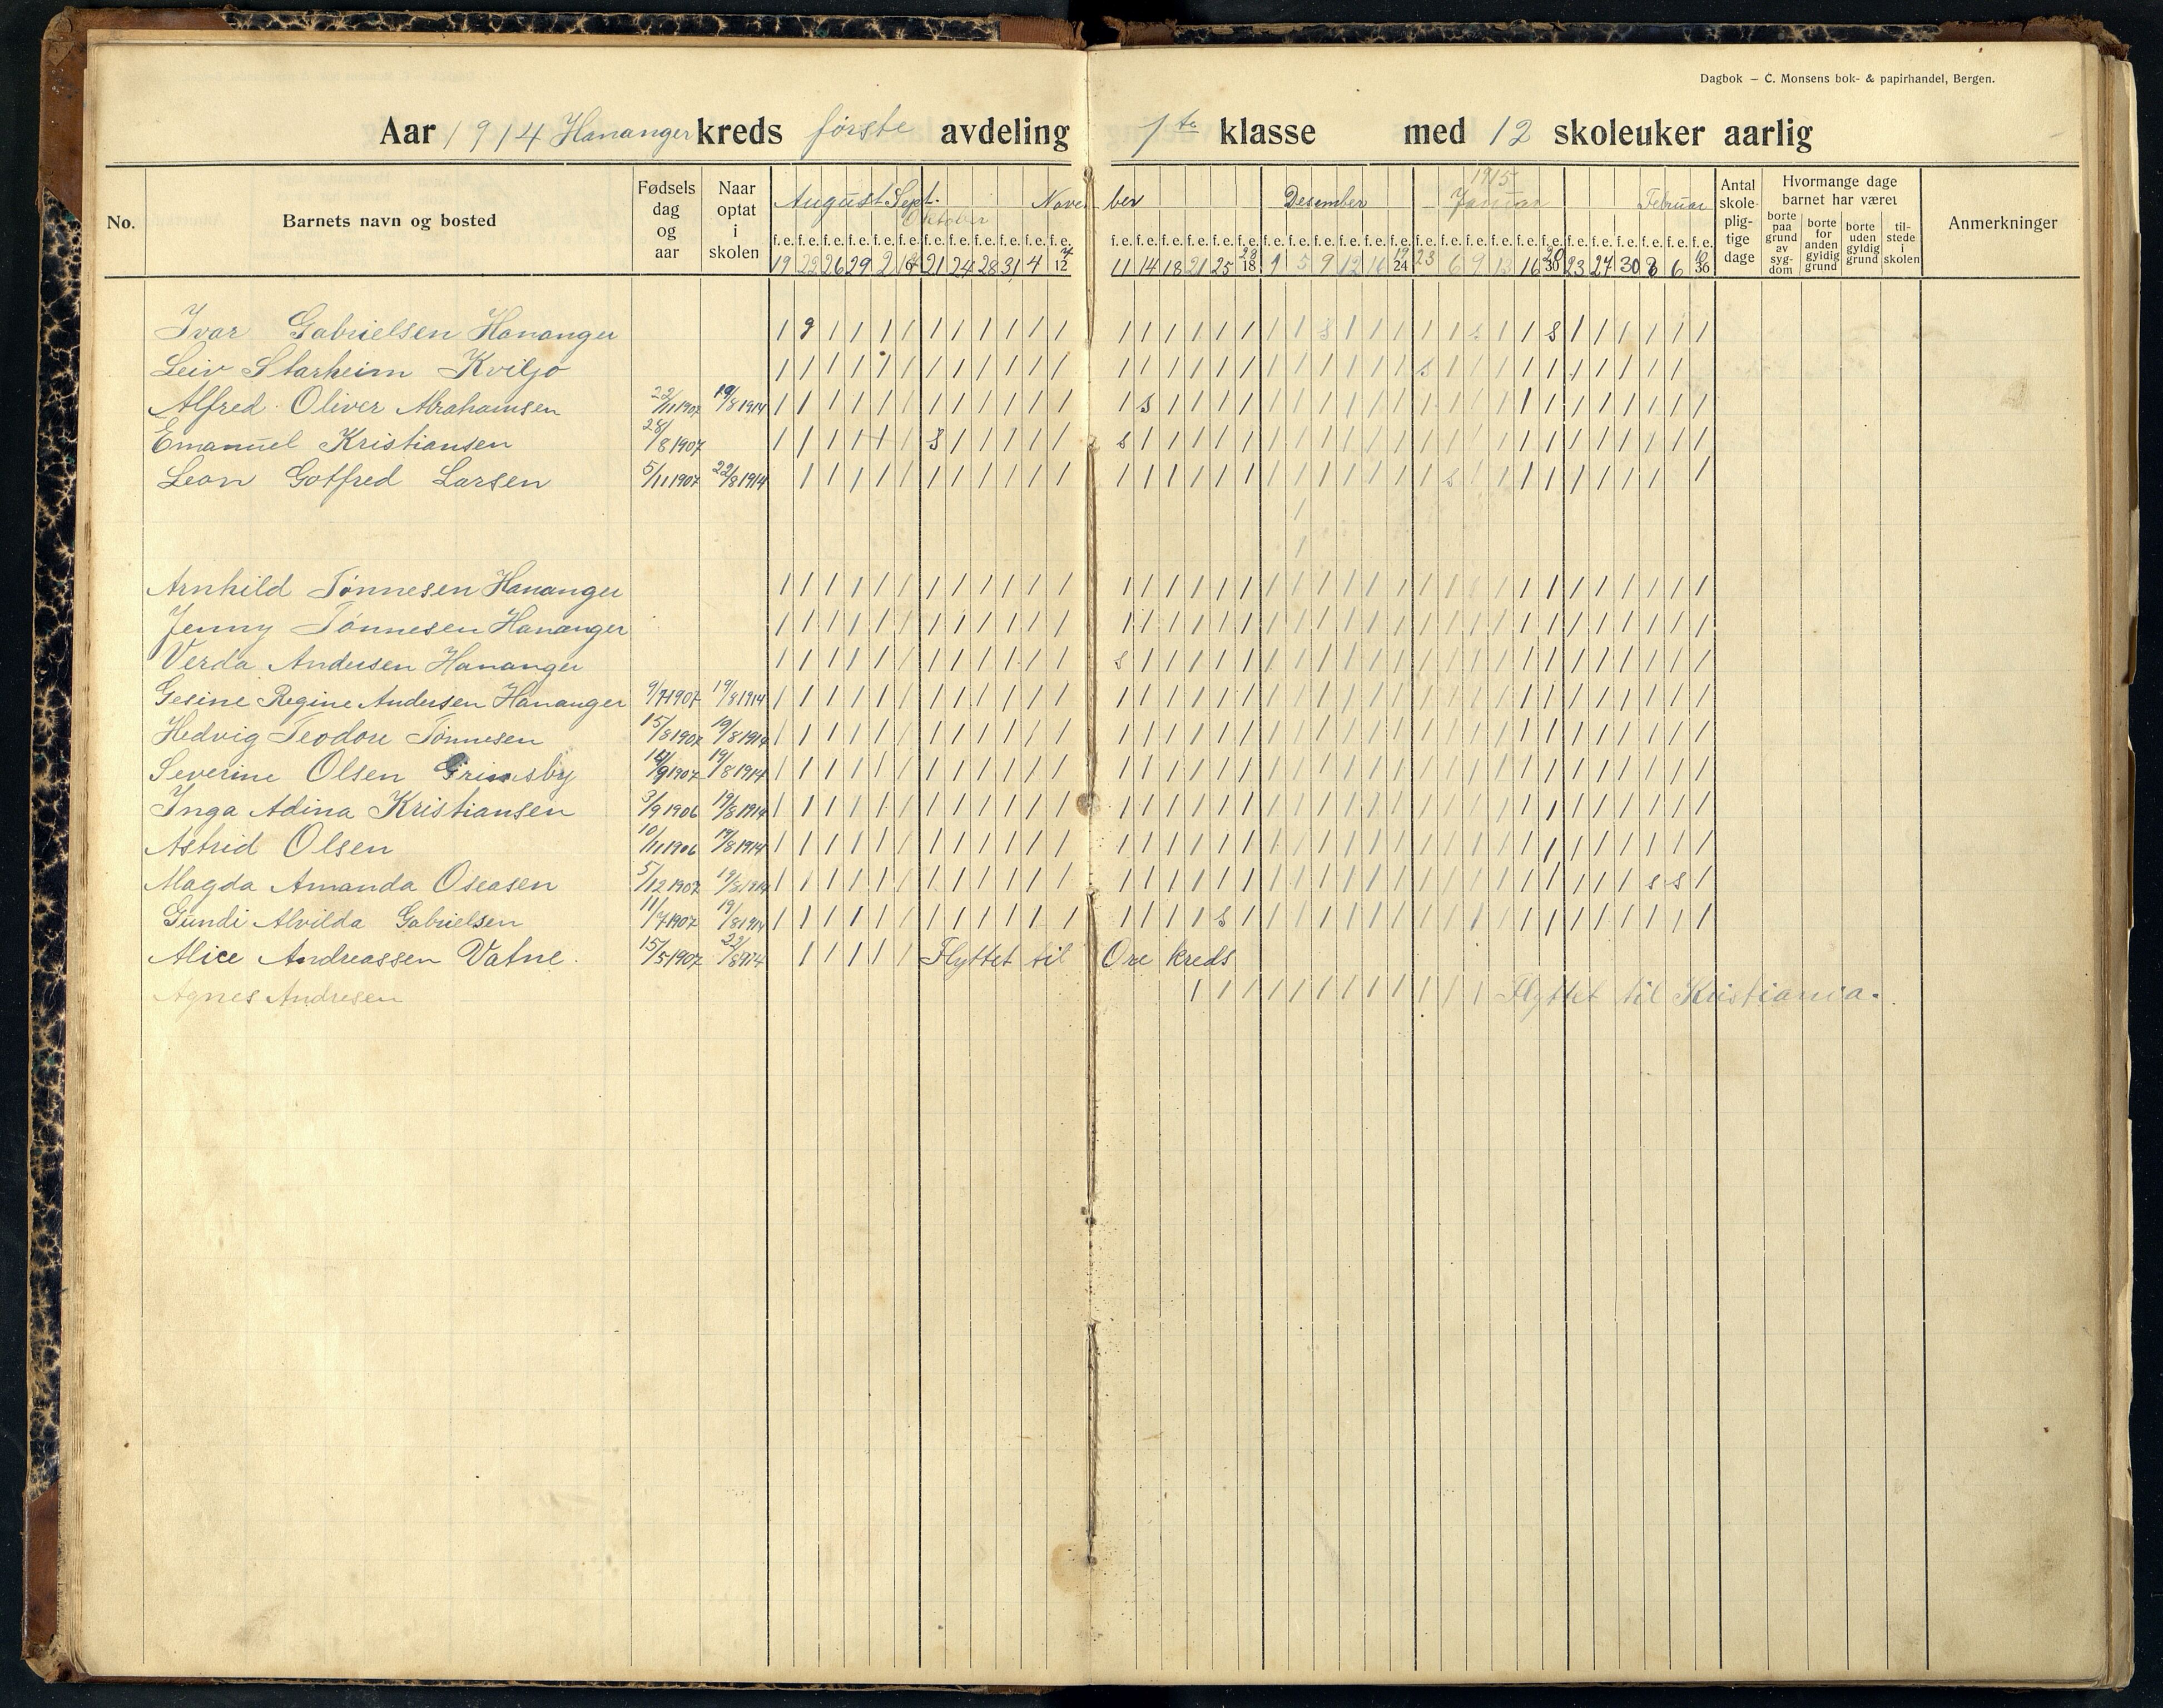 Dagbok — C. Monsens bok- & papirhandel, Bergen.
Aar 1914 Hananger kreds første avdeling 1ste klasse med 12 skoleuker aarlig
No.
Barnets navn og bosted
Fødsels dag og aar
Naar optat i skolen
August Sept. Oktober November Desember 1915 Januar Februar
Antal skole- plig- tige dage
Hvormange dage barnet har været
borte paa grund av syg- dom
borte for anden gyldig grund
borte uden gyldig grund
til- stede i skolen
Anmerkninger
f. e. f. e. f. e. f. e. f. e. f. e. f. e. f. e. f. e. f. e. f. e. f. e. f. e. f. e. f. e. f. e. f. e. f. e. f. e. f. e. f. e. f. e. f. e. f. e. f. e. f. e. f. e. f. e. f. e. f. e. f. e. f. e. f. e. f. e. f. e. f. e.
19 22 26 29 2 21 24 28 31 4 7 12 11 14 18 21 25 28 18 1 5 9 12 16 19 24 23 6 9 13 16 20 30 23 27 30 3 6 10 36
Ivar Gabrielsen Hananger
Leiv Starheim Kviljo
Alfred Oliver Abrahamsen 22/11 1907 19/8 1914
Emanuel Kristiansen 28/8 1907
Leon Gotfred Larsen 5/11 1907 22/8 1914
Arnhild Tønnesen Hananger
Jenny Tønnesen Hananger
Verda Andersen Hananger
Gesine Regine Andersen Hananger 9/7 1907 19/8 1914
Hedvig Teodore Tønnesen 15/8 1907 19/8 1914
Severine Olsen Grimsby 19/8 1914
Inga Adina Kristiansen 3/9 1906 19/8 1914
Astrid Olsen 10/11 1906 19/8 1914
Magda Amanda Oseasen 5/12 1907 19/8 1914
Gundi Alvilda Gabrielsen 11/7 1907 19/8 1914
Alice Andreassen Vatne. 15/5 1907 22/8 1914 Flyttet til Ore kreds
Agnes Andresen Flyttet til Kristiania.